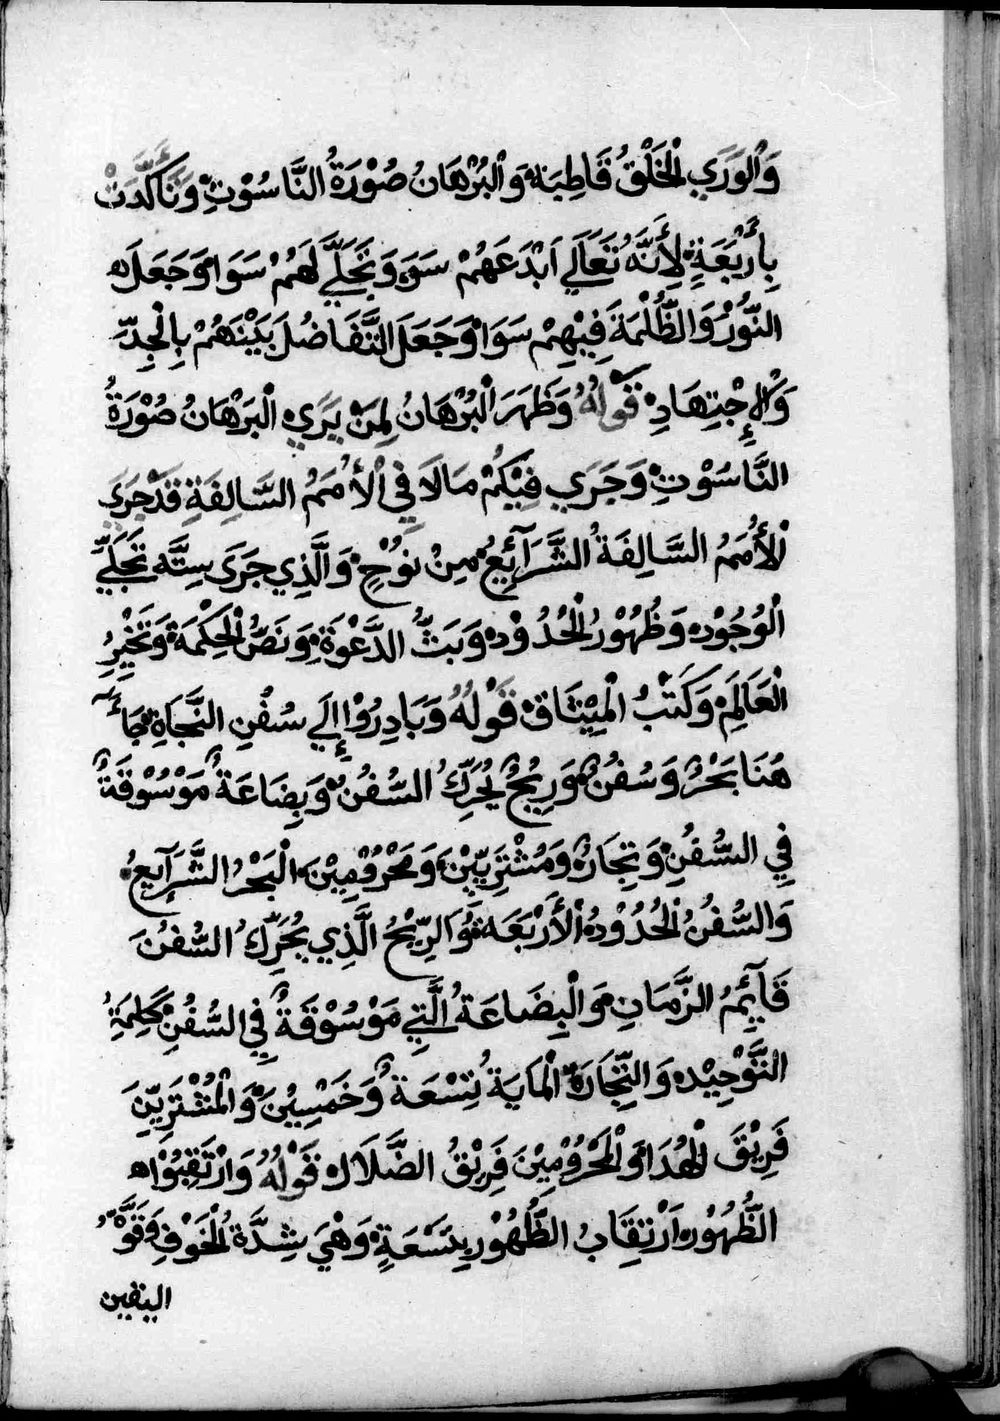 وَالْوَرَي الْخَلْقُ قَاطِبَهْ وَالْبُرْهَانُ صُوْرَةُ النَّاسُوْتِ وَتَأَكَّدَتْ
بِأَرْبَعَةٍ لِأَنَّهُ تَعَالَي اَبْدَعَهُمْ سَوَه وَتَجَلَّي لَهُمْ سَوَا وَجَعَلَ
النُّوْرُ وَالظُّلْمَةَ فِيْهِمْ سَوَا وَجَعَلَ التَّفَاضُلَ بَيْنَهُمْ بِالْجِدِّ
وَالْإِجْتِهَادِ قَوْلُهُ وَظَهَرَ الْبُرْهَانُ لِمَنْ يَرَي الْبَرْهَانُ صُوْرَةُ
النَّاسُوْتِ وَجَرَي فِيْكُمْ مَالَا فِي الْأُمَمِ السَّالِفَةِ قَدْ جَرَي
الْأُمَمُ السَّالِفَةُ الشَّرَآئِعُ مِنْ نُوْحٍ وَالَّذِي جَرَى سِتَّه تَجَلِّي
الْوُجُوْد وَظُهُوْرُ الْحُدُوْد وَبَثُّ الدَّعْوَةِ وَنَصُّ الْحِكْمَةْ وَتَخْيِيْرُ
الْعَالَمِ وَكَتْبُ الْمِيْثَاقْ قَوْلُهُ وَبَادِرُوْا إِلَي سُفُنِ النَّجَاةِ جَاءَ
هُنَا بَحْرٌ وَسُفُنٌ وَرِيْحٌ يُحَرِّكُ السُّفُنْ وَبِضَاعَةٌ مَوْسُوْقَةٌ
فِي السُّفُنِ وَتِجَارٌ وَمُشْتَرِيِّيْنَ وَمَحْرُوْمِيْنَ الْبَحْرُ الشَّرَآيِعُ
وَالسُّفُنُ الْحُدُوْدُ الْأَرْبَعَةْ وَالرِّيْحُ الَّذِي يُحَرِّكُ السُّفُنَ
قَآيِمُ الزَّمَانِ وَالْبِضَاعَةُ الَّتِي مَوْسُوْقَةٌ فِي السُّفُنِ كَلِمَةُ
التَّوْحِيْد وَالتِّجَارْ الْمَايَةُ تِسْعَةٌ وَخَمْسِيْنَ وَالْمُشْتَرِيِّيْنَ
فَرِيْقَ الْهُدَا وَالْمَحْرُوْمِيْنَ فَرِيْقُ الضَّلَالْ قَوْلُهُ وَارْتَقِبُوْا
الظُّهُوْر اَرْتِقَابُ الظُّهُوْرِ بِتِسْعَةٍ وَهْيَ شِدَّةُ الْخَوْفِ وَقُوَّةُ
اليقين